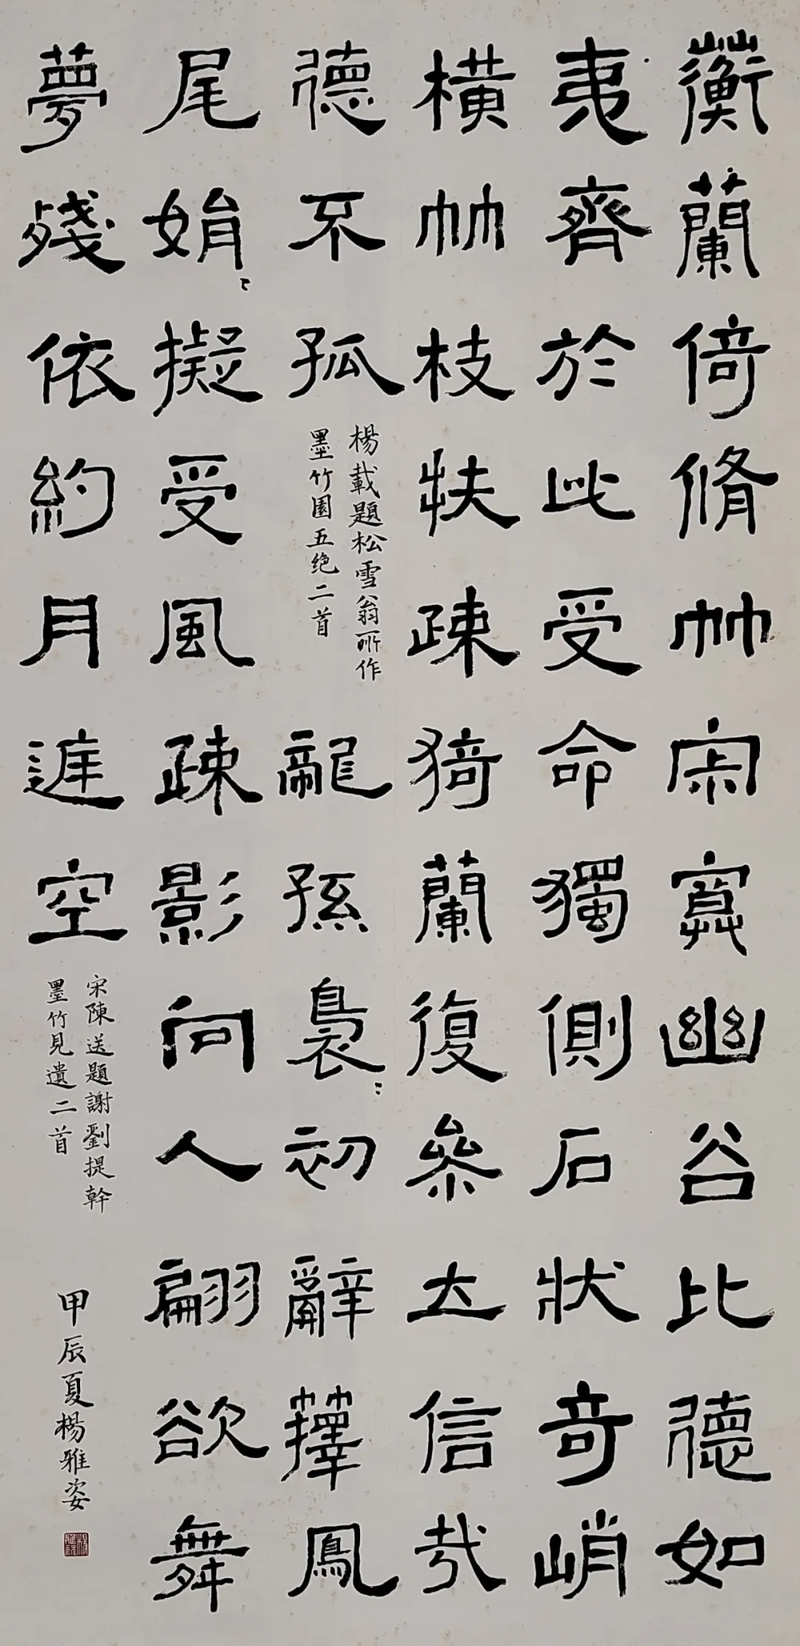 蘅蘭倚脩竹寂寞幽谷比德如
夷齊於此受命獨側石狀奇峭
橫竹枝扶疎猗蘭復參立信哉
德不孤
楊載題松雪翁所作
墨竹圖五绝二首
龍孫裊〻初辭蘀鳳
尾娟〻擬受風疎影向人翩欲舞
夢殘依約月進空
宋陳送題謝劉提幹
墨竹見遺二首
甲辰夏楊雅姿